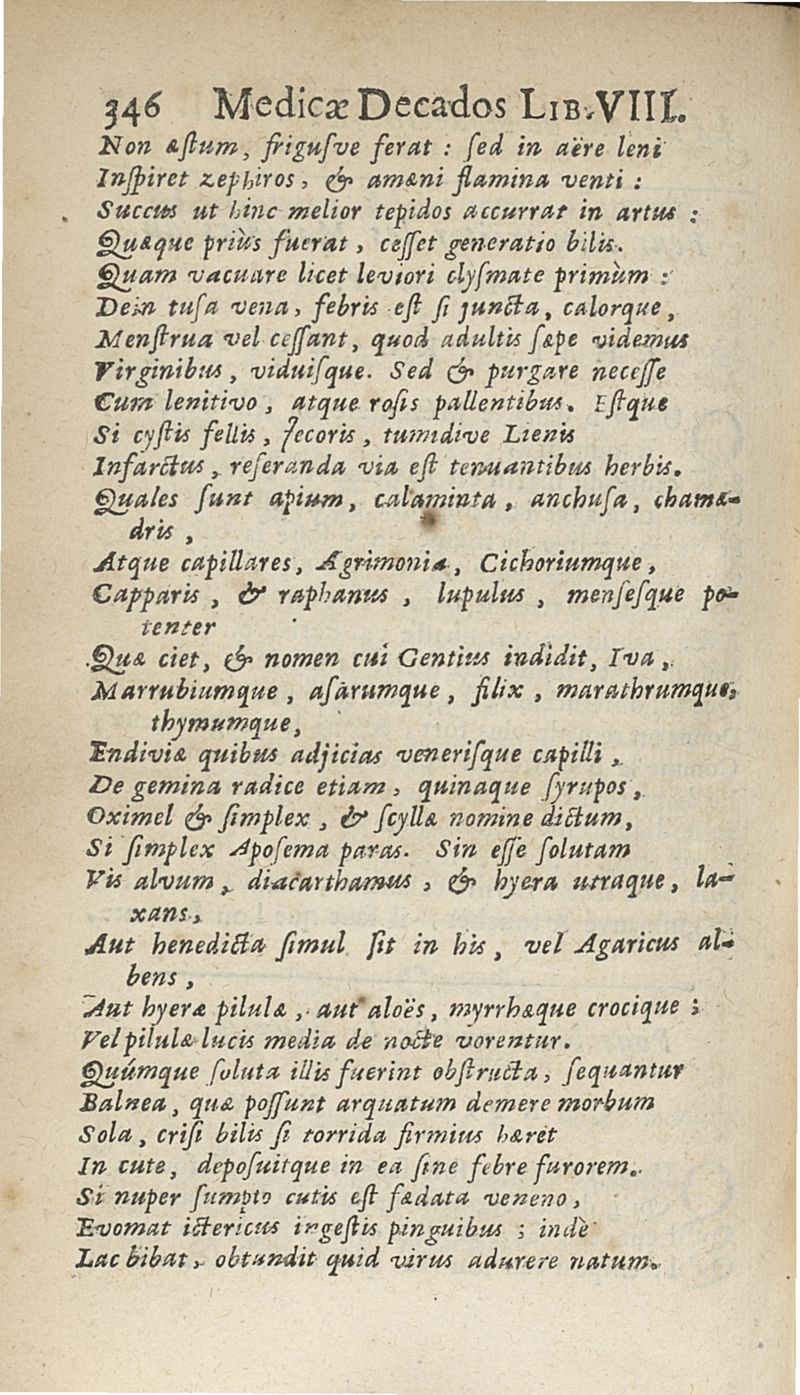 346 Medicæ Decados LIB. VIII.
Non æſtum, frigusve ferat : ſed in aëre leni
Inſpiret zephiros, & amæni flamina venti :
Succus ut hinc melior tepidos accurrat in artus :
Quæque priùs fuerat, ceſſet generatio bilis.
Quam vacuare licet leviori clyſmate primùm :
Dein tuſa vena, febris eſt ſi juncta, calorque,
Menſtrua vel ceſſant, quod adultis ſæpe videmus
Virginibus, viduiſque. Sed & purgare neceſſe
Cum lenitivo, atque roſis pallentibus. Eſtque
Si cyſtis fellis, Jecoris, tumidive Lienis
Infarctus, reſeranda via eſt tenuantibus herbis.
Quales ſunt apium, calaminta, anchuſa, chamæ-
dris,
Atque capillares, Agrimonia, Cichoriumque,
Capparis, & raphanus, lupulus, menſeſque po-
tenter
Quæ ciet, & nomen cui Gentius indidit, Iva,
Marrubiumque, aſarumque, filix, marathrumque,
thymumque,
Endiviæ quibus adjicias veneriſque capilli,
De gemina radice etiam, quinaque ſyrupos,
Oximel & ſimplex, & ſcyllæ nomine dictum,
Si ſimplex Apoſema paras. Sin eſſe ſolutam
Vis alvum, diacarthamus, & hyera utraque, la-
xans,
Aut henedicta ſimul ſit in his, vel Agaricus al-
bens,
Aut hyeræ pilulæ, aut aloës, myrrhæque crocique ;
Vel pilulæ lucis media de nocte vorentur.
Quúmque ſoluta illis fuerint obſtructa, ſequantur
Balnea, quæ poſſunt arquatum demere morbum
Sola, criſi bilis ſi torrida firmius hæret
In cute, depoſuitque in ea ſine febre furorem.
Si nuper ſumpto cutis eſt fædata veneno,
Evomat ictericus ingeſtis pinguibus ; indè
Lac bibat, obtundit quid virus adurere natum.